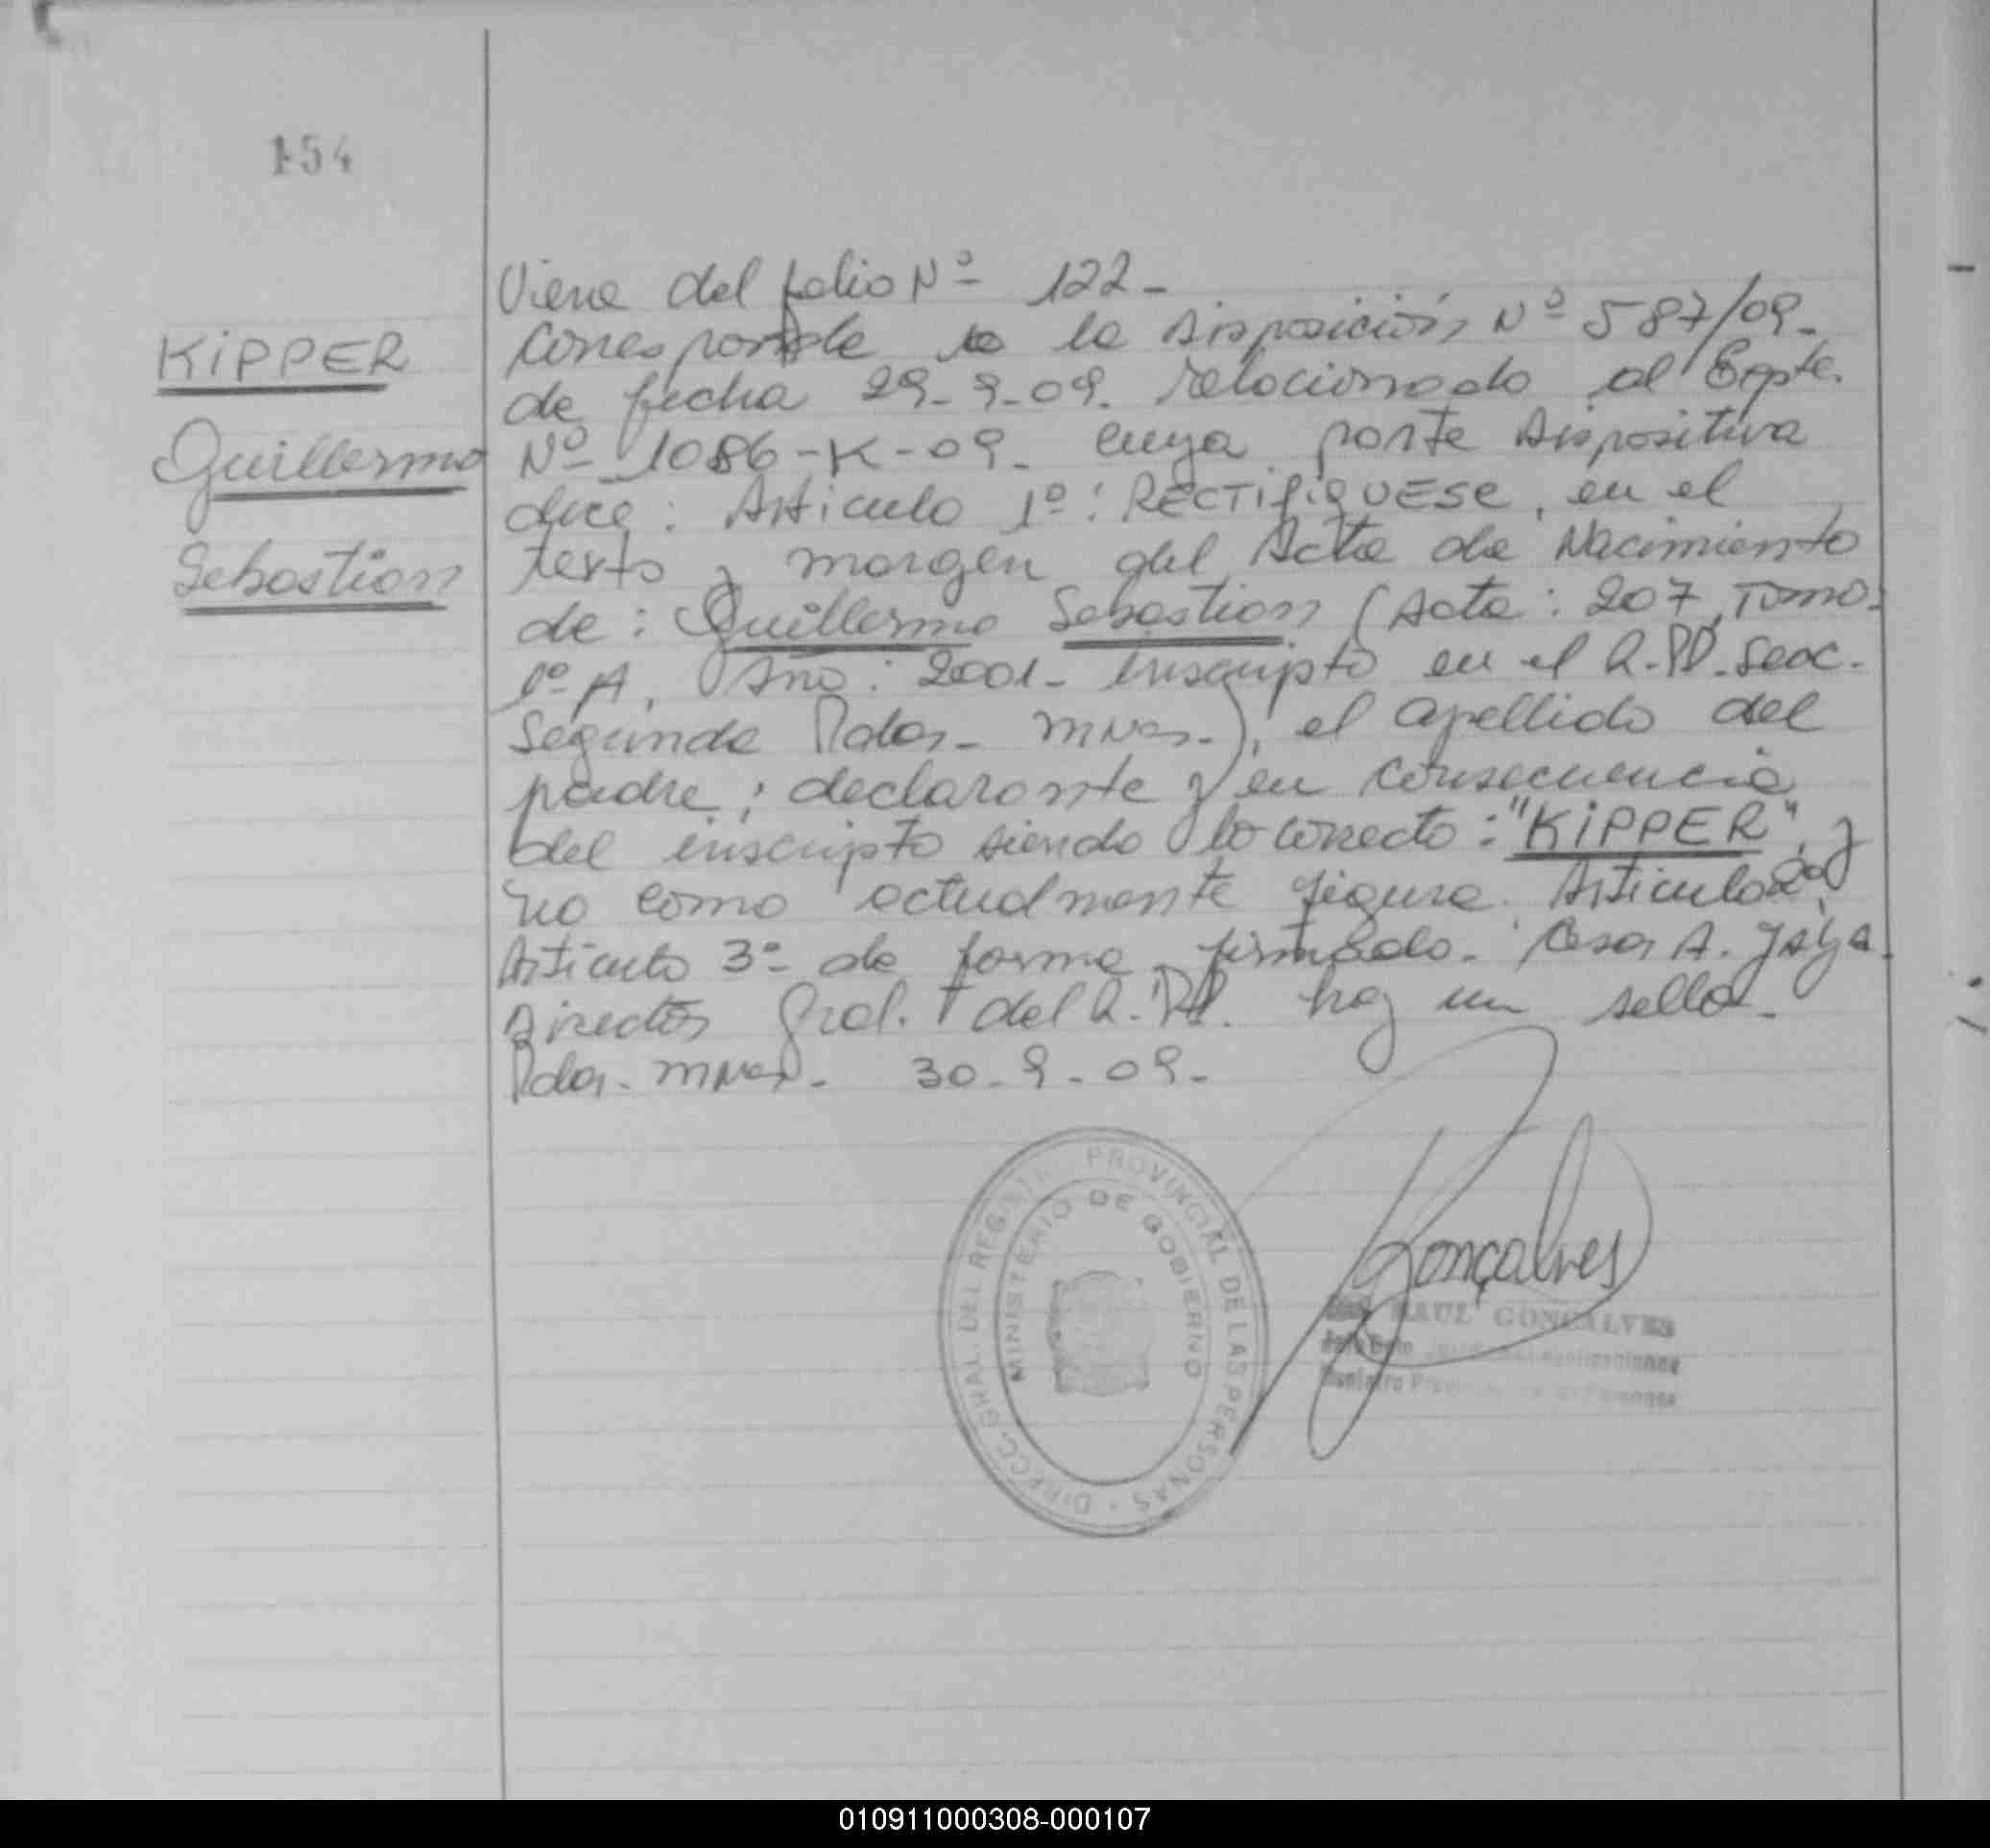 154
KiPPER
Guillermo
Sebastian
Viene del folio Nº 122-
Corresponde a la Disposición Nº 587/09-
de fecha 29-9-09. relacionado al Expte.
Nº 1086-K-09- cuya parte Dispositiva
dice: Articulo 1º: RECTIFIQUESE, en el
texto y margen del Acta de Nacimiento
de: Guillermo Sebastian (Acta: 207, Tomo:
1º A, Año: 2001- inscripto en el R.PP. Secc.
Segunda Pdas- MNes-), el apellido del
padre; declarante y en consecuencia
del inscripto siendo lo correcto: "KiPPER", y
no como actualmente figura. Articulo 2º y
Articulo 3º de forma. firmado. Cesar A.
Director Gral. del R.PP. hay un sello-
Pdas- MNes- 30-9-09-
DIRECC. GRAL. DEL REGISTRO PROVINCIAL DE LAS PERSONAS
MINISTERIO DE GOBIERNO
Gonçalves
RAUL GONCALVES
010911000308-000107